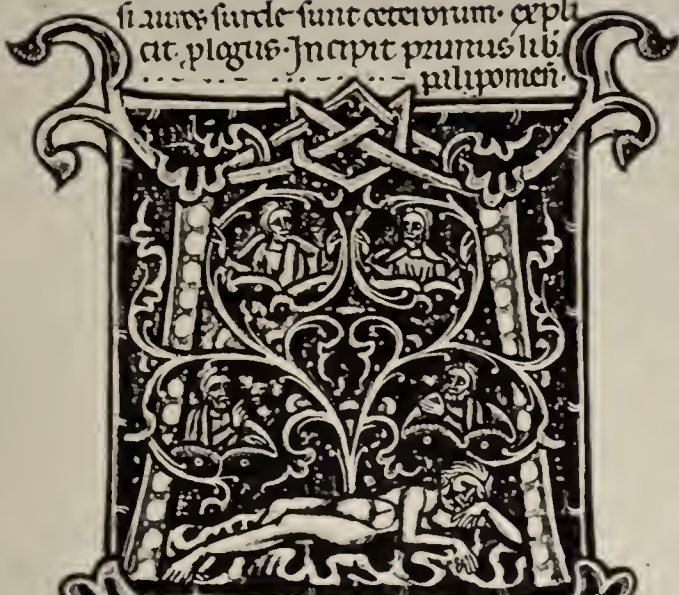 si aures surde sunt ceterorum. expli
cit plogus. Incipit primus lib
palipomeñ.